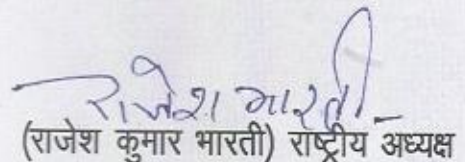 राजेश भारती
(राजेश कुमार भारती) राष्ट्रीय अध्यक्ष